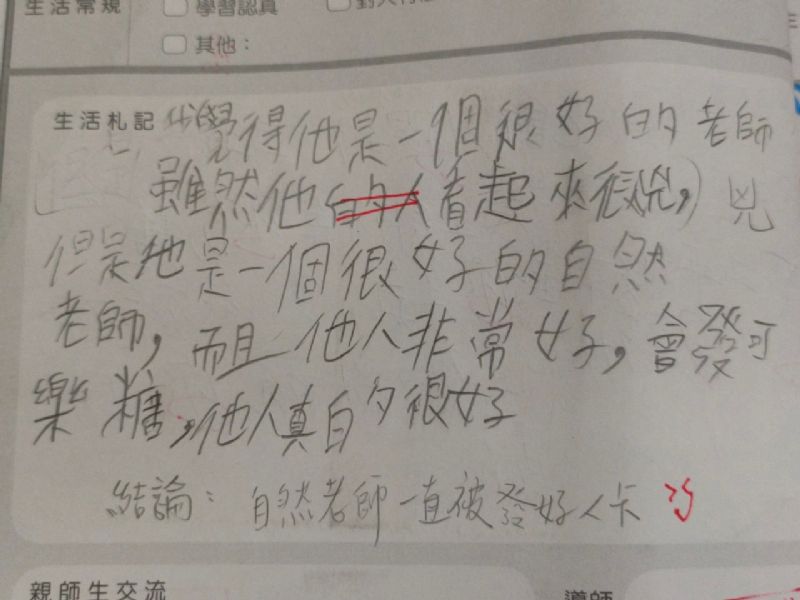 生活常規
學習認真
其他：
生活札記
我覺得他是一個很好的老師
雖然他的人看起來很兇，兇
但是他是一個很好的自然
老師，而且他人非常好，會發可
樂糖，他人真的很好
結論：自然老師一直被發好人卡
親師生交流
導師